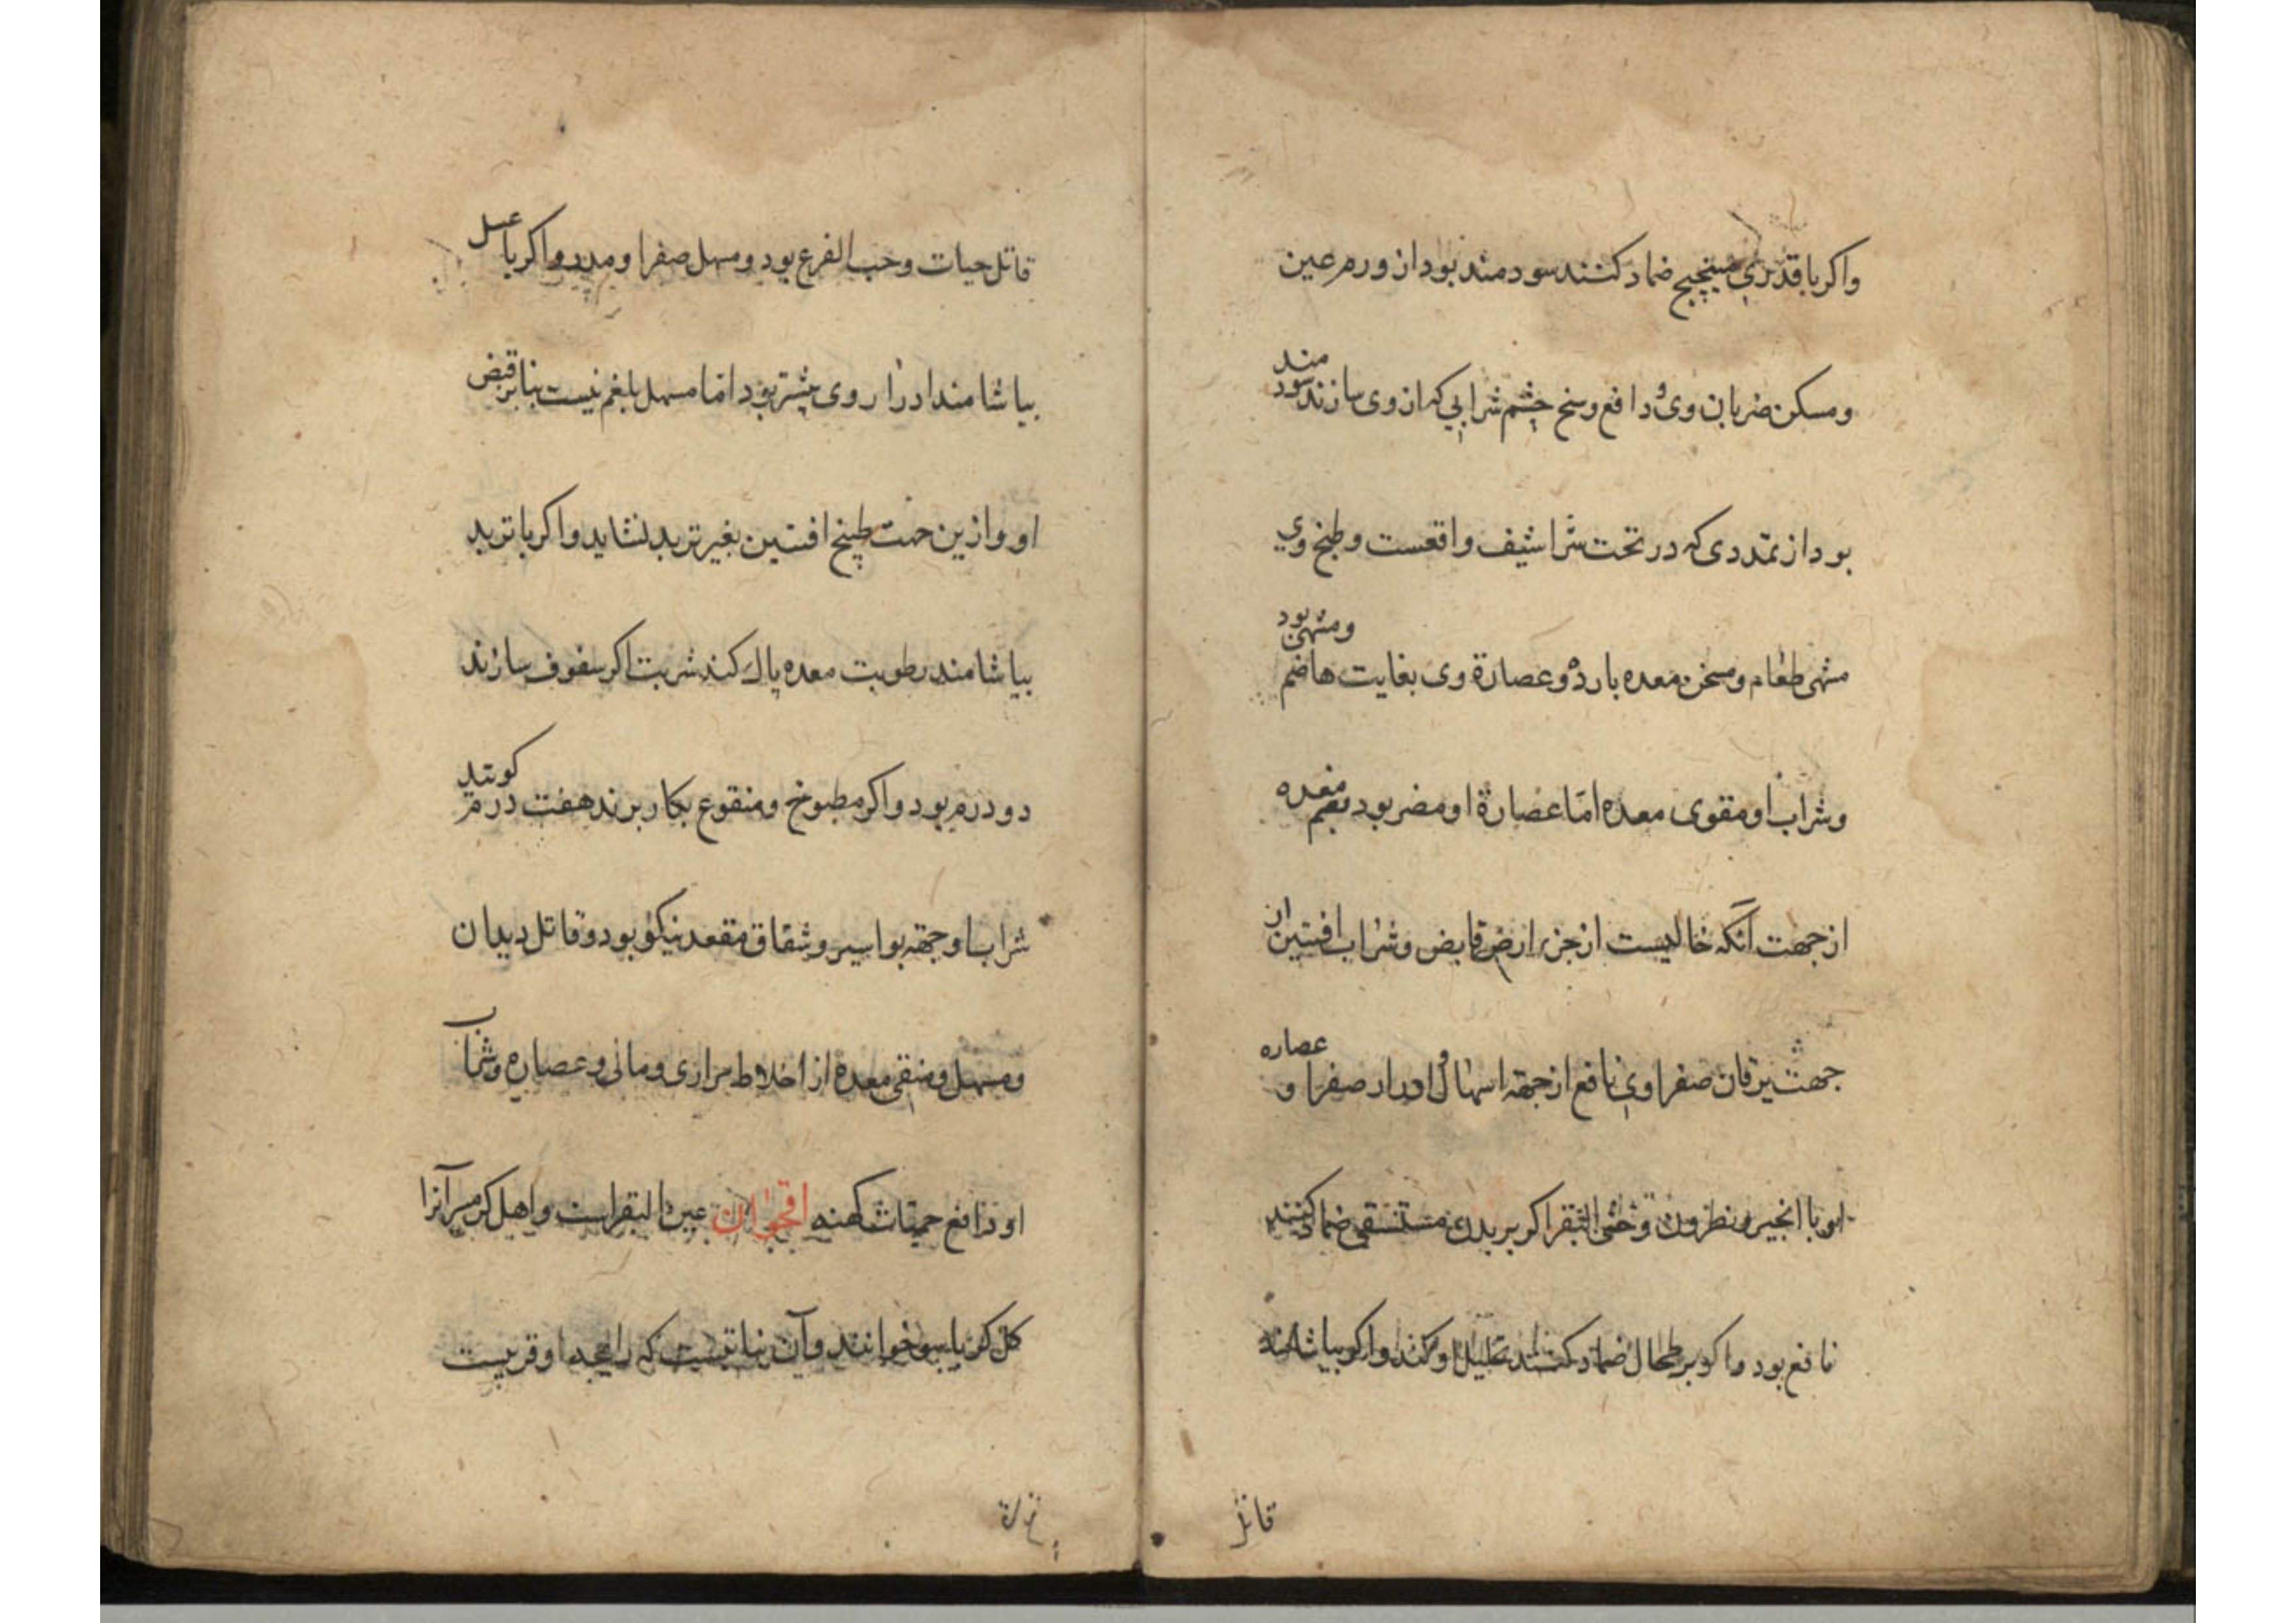 واکر با قدری میبختج ضماد کنند سودمند بود از ورم عین
ومسکن ضربان وی و دافع وسخ چشم شرابی که از وی سازند سود مند
بود از تمددی که در تحت شراشیف واقعست وطبخ وی
مشهی طعام ومسخن معده بارده وعصارة وی بغایت هاضم ومشهی بود
وشراب او مقوی معده اما عصارة او مضر بود بفم معده
از جهت آنکه خالیست از جزء ارض قابض وشراب افسنتین از
جهت یرقان صفراوی نافع از جهة اسهال و ادرار صفرا و عصاره
او با انجیر ونطرون وخثی البقر اکر بر بدن مستسقی ضماد کنند
نافع بود واکر بر طحال ضماد کنند تحلیل او کند واکر بیاشامند
قاتل
قاتل حیات وحب القرع بود ومسهل صفرا ومدر واکر با عسل
بیاشامند ادرار وی بیشتر بود اما مسهل بلغم نیست بنابر قبض
او واز ین جهت طبیخ افسنتین بغیر تربد نشاید واکر با تربد
بیاشامند رطوبت معده پاک کند شربت اکر سفوف سازند
دو درم بود واکر مطبوخ ومنقوع بکار برند هفت درم کویند
شراب او جهة بواسیر وشقاق مقعد نیکو بود وقاتل دیدان
ومسهل ومنقی معده از اخلاط مراری ومائی وعصاره وشراب
او دافع حمیات کهنه اقحوان عین البقر است واهل کرمسر آنرا
کل کریاسو خوانند وآن نباتیست که رایحه او قریبست